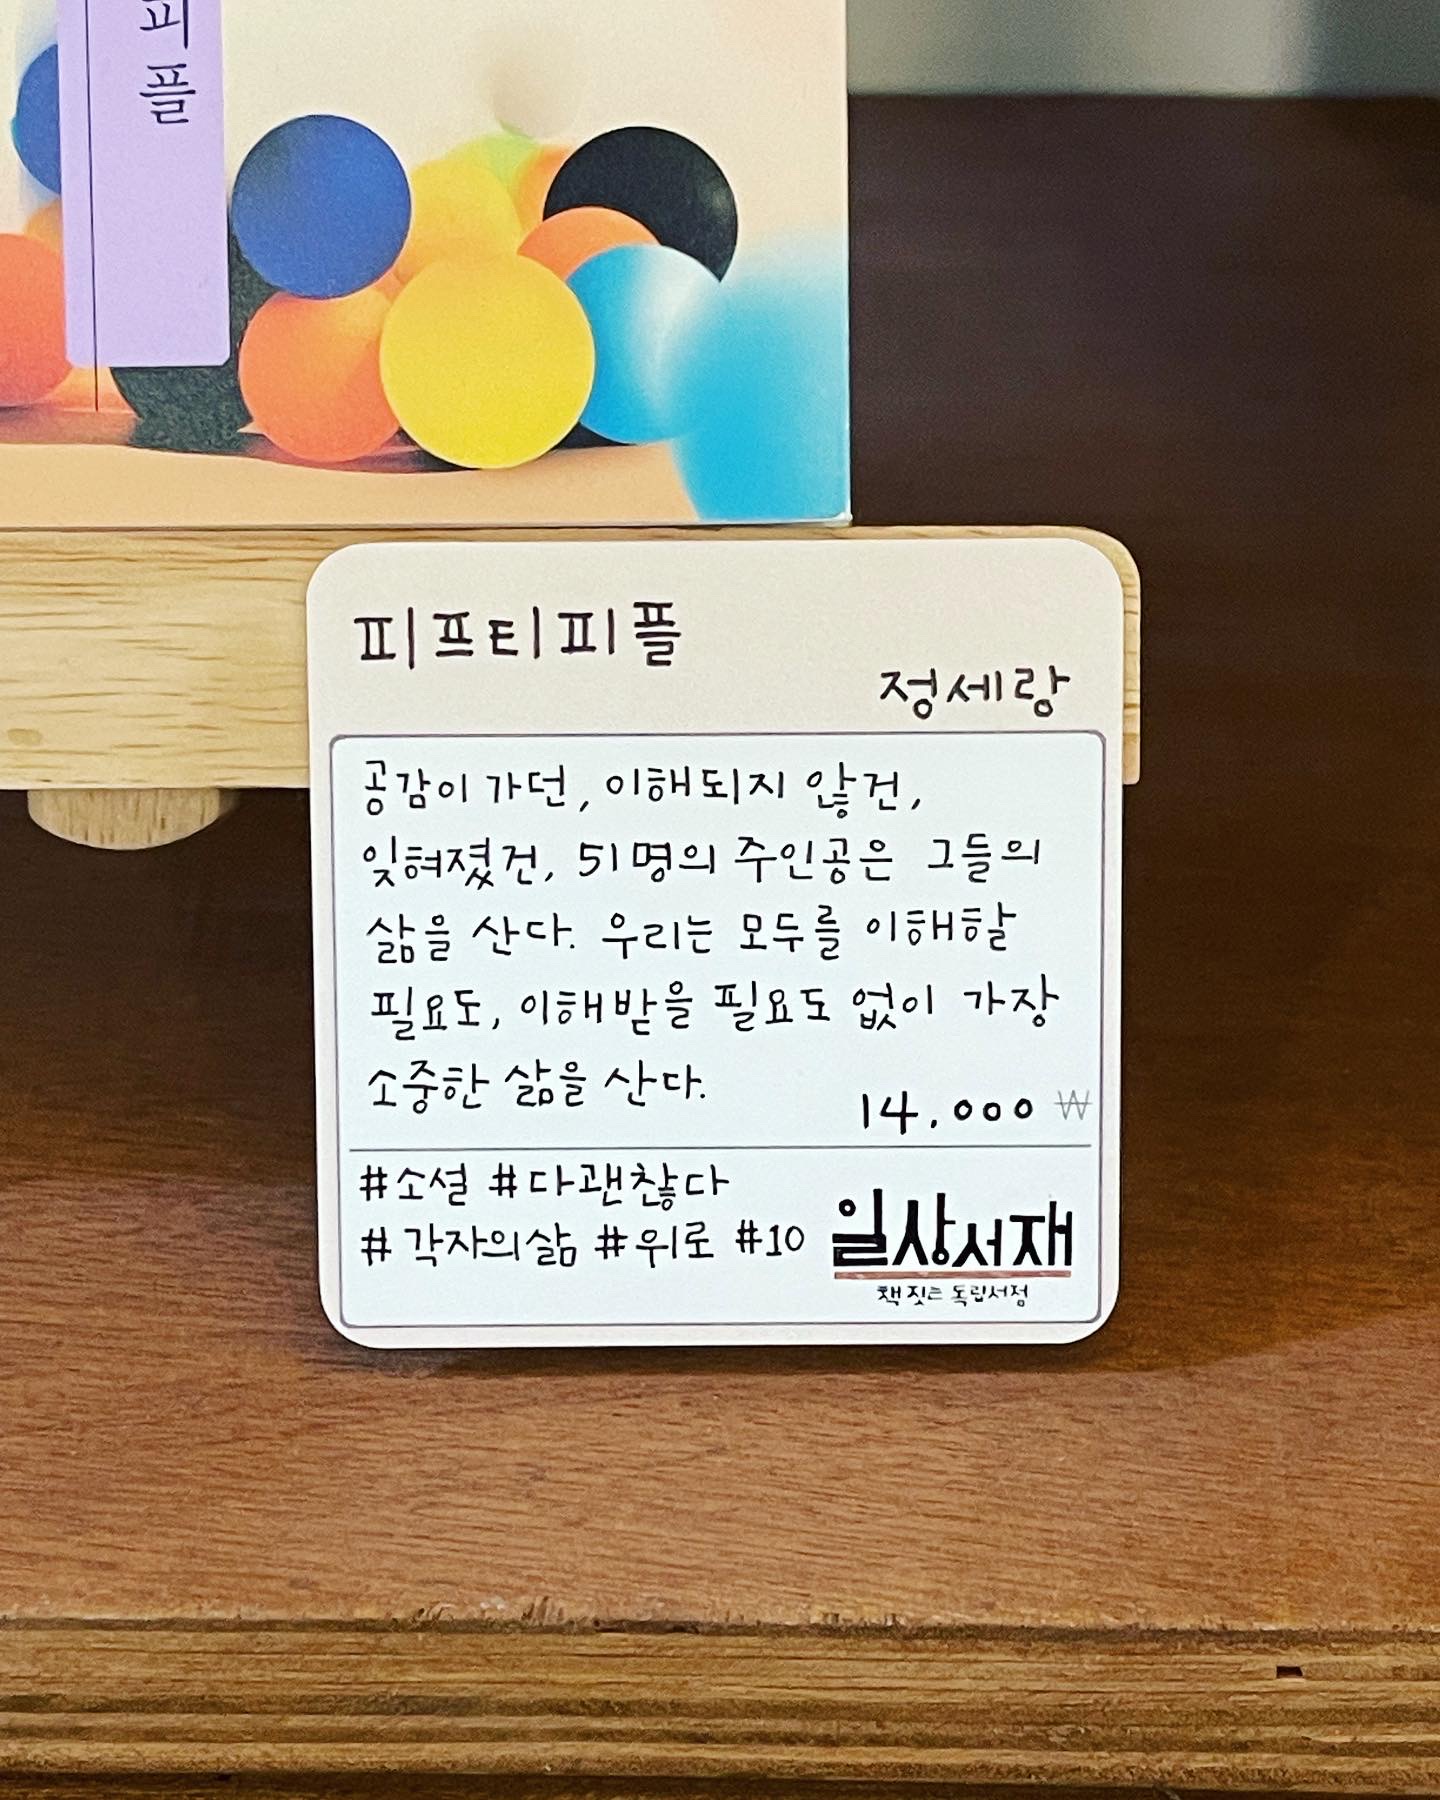 피
플
피프티피플
정세랑
공감이 가던, 이해되지 않건,
잊혀졌건, 51명의 주인공은 그들의
삶을 산다. 우리는 모두를 이해할
필요도, 이해받을 필요도 없이 가장
소중한 삶을 산다.
14,000 ₩
#소설 #다괜찮다
#각자의삶 #위로 #10
일상서재
책 짓는 독립서점